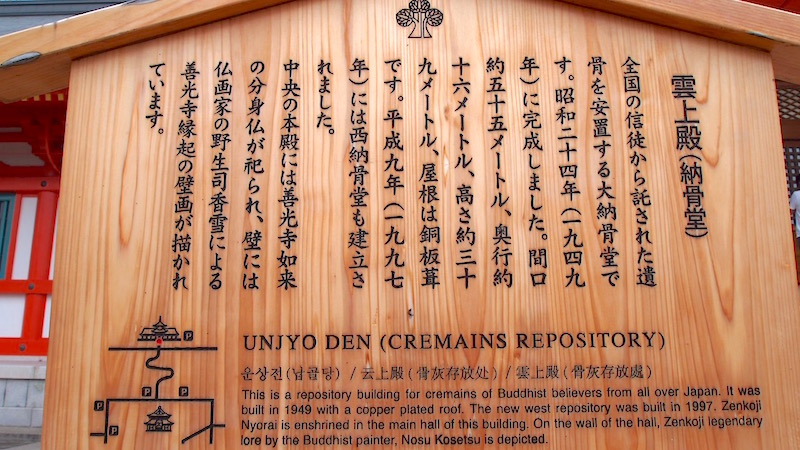 雲上殿(納骨堂)
全国の信徒から託された遺
骨を安置する大納骨堂で
す。昭和二十四年(一九四九
年)に完成しました。間口
約五十五メートル、奥行約
十六メートル、高さ約三十
九メートル、屋根は銅板葺
です。平成九年(一九九七
年)には西納骨堂も建立さ
れました。
中央の本殿には善光寺如来
の分身仏が祀られ、壁には
仏画家の野生司香雪による
善光寺縁起の壁画が描かれ
ています。
UNJYO DEN (CREMAINS REPOSITORY)
운상전(납골당) / 云上殿(骨灰存放处) / 雲上殿(骨灰存放處)
This is a repository building for cremains of Buddhist believers from all over Japan. It was
built in 1949 with a copper plated roof. The new west repository was built in 1997. Zenkoji
Nyorai is enshrined in the main hall of this building. On the wall of the hall, Zenkoji legendary
lore by the Buddhist painter, Nosu Kosetsu is depicted.
P
P
P
P